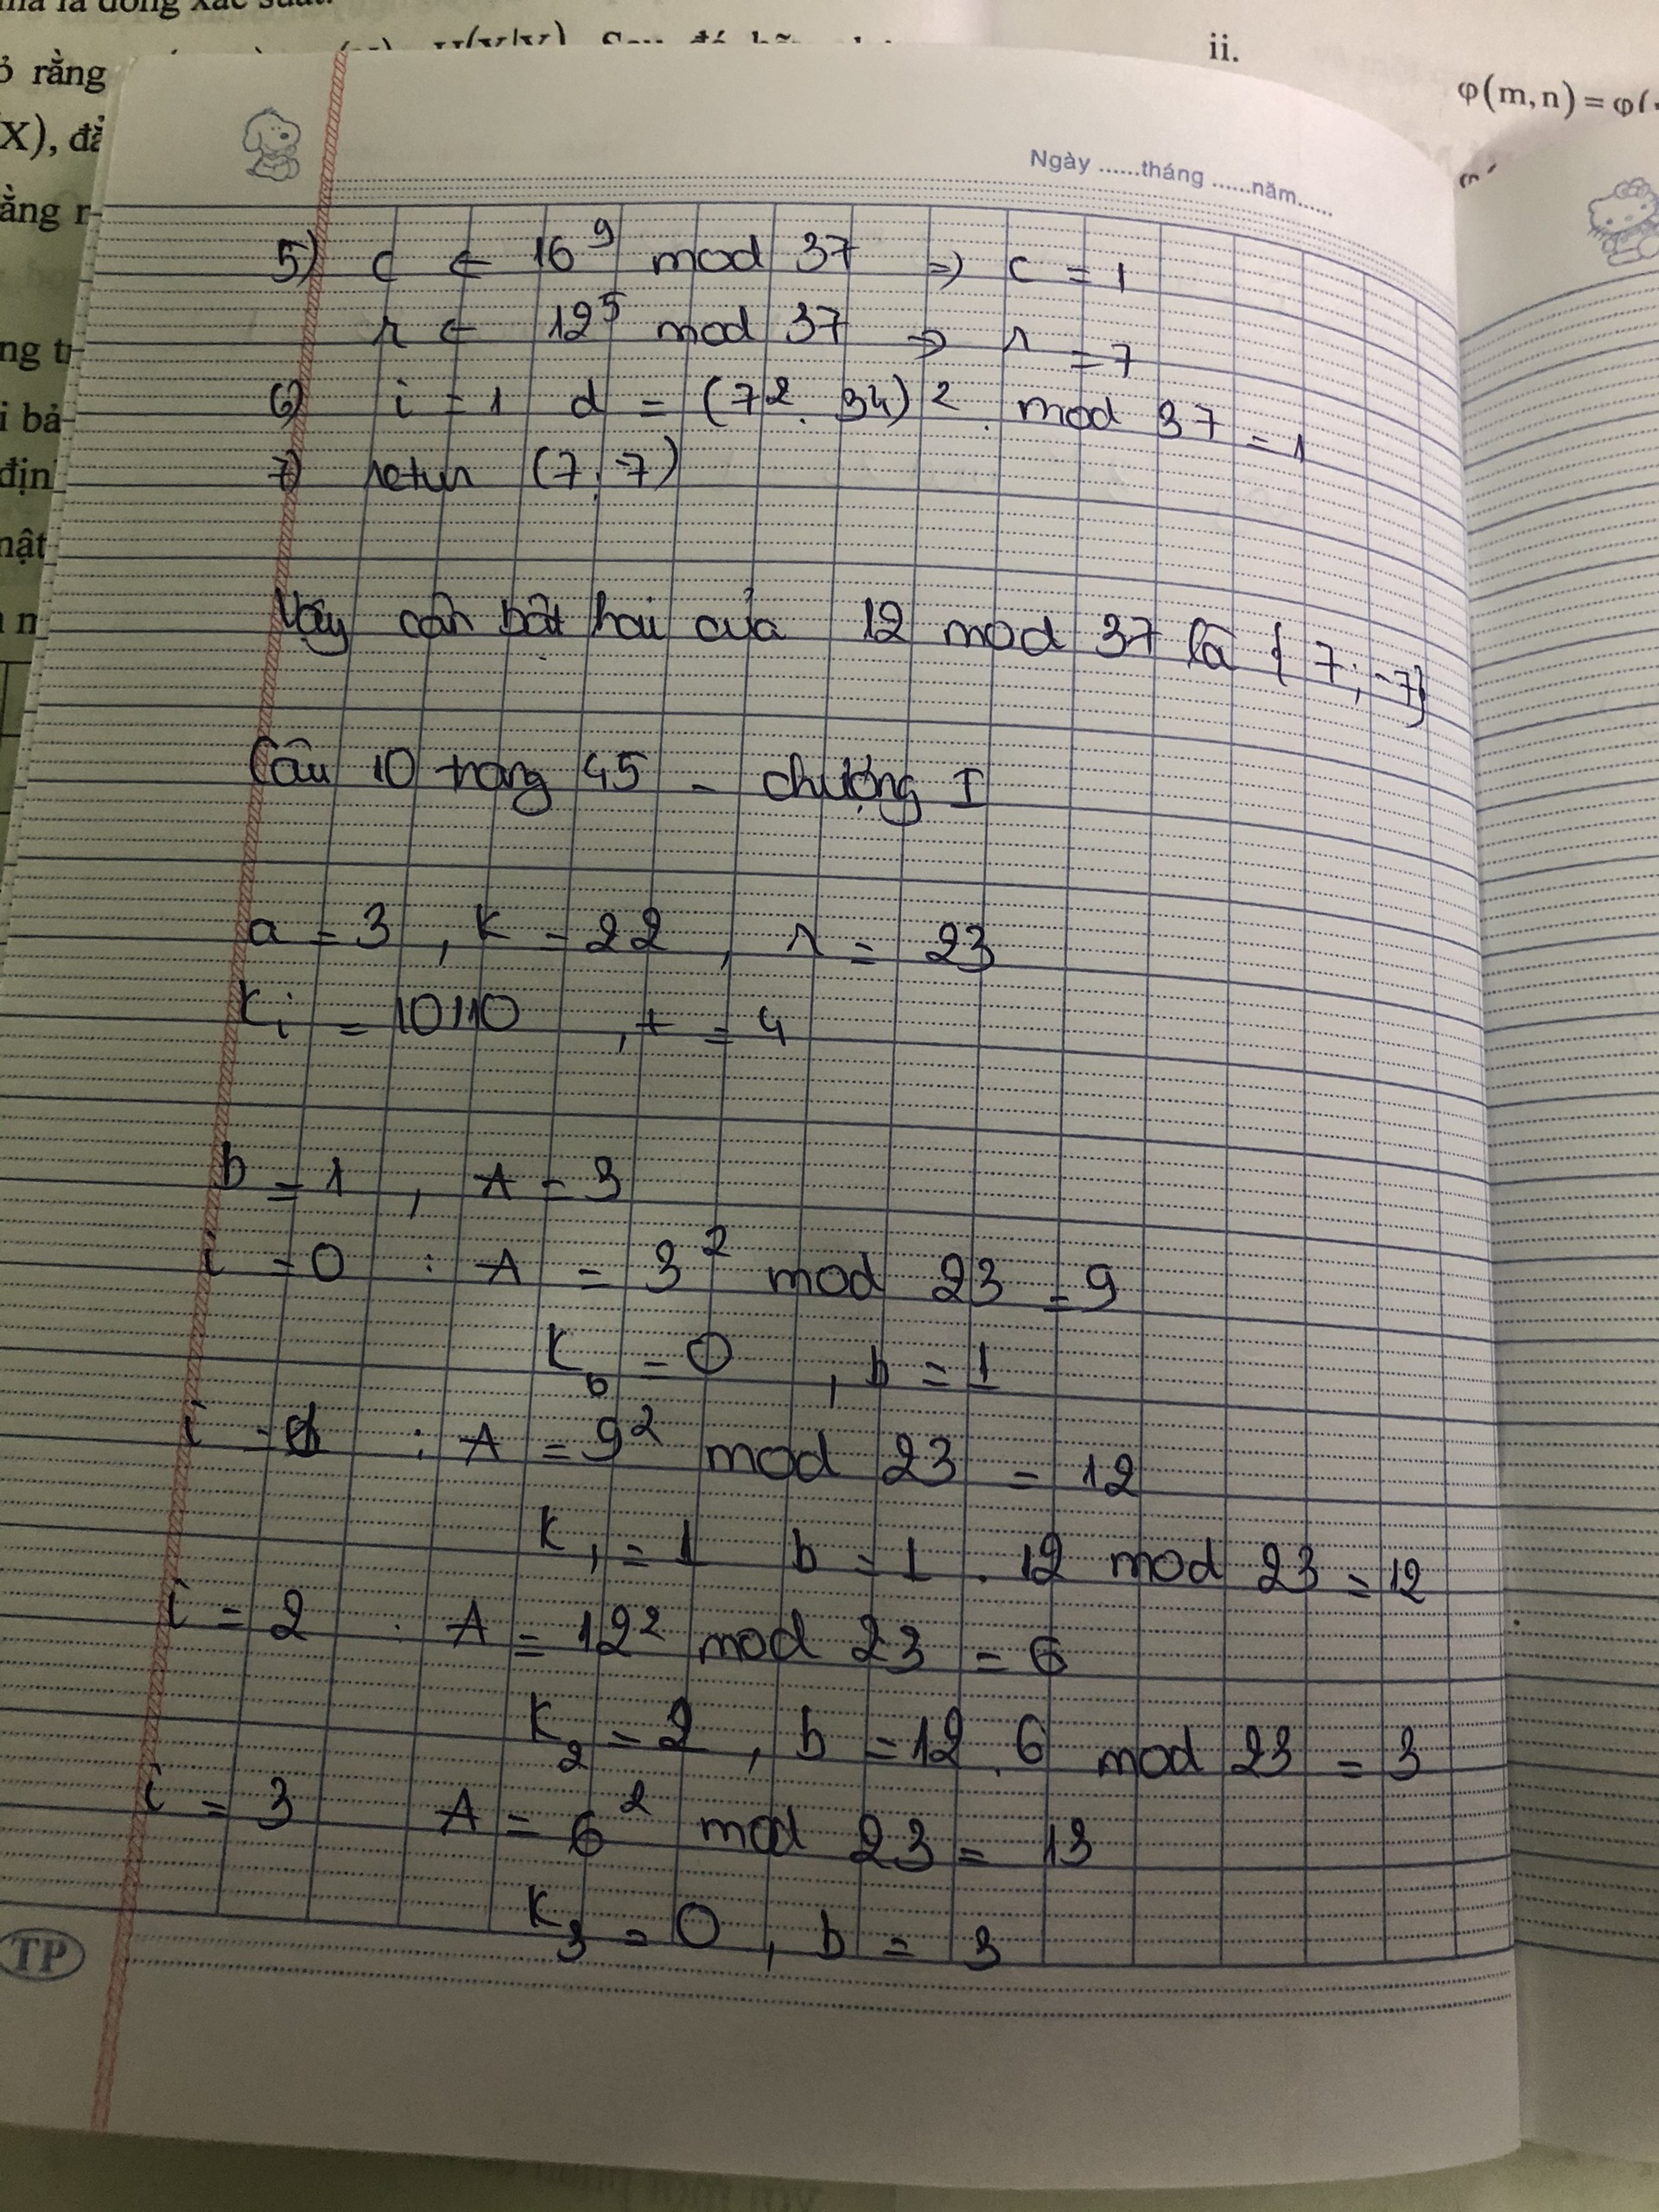 ỏ rằng
X), đă
ằng r
ng tr
i bả
địn
nật
ii.
φ(m,n) = φ(
Ngày ......tháng ......năm......
5) c ← 16⁹ mod 37 => c = 1
r ← 12⁵ mod 37 => r = 7
6) i = 1 d = (7². 34)² mod 37 = 1
7) retur (7; -7)
Vậy căn bật hai của 12 mod 37 là { 7; -7}
Câu 10 trang 45 - chương I
a = 3 , k = 22 , n = 23
Ki = 10110 , t = 4
b = 1 , A = 3
i = 0 : A = 3² mod 23 = 9
K₀ = 0 , b = 1
i = 1 : A = 9² mod 23 = 12
K₁ = 1 b = 1 . 12 mod 23 = 12
i = 2 : A = 12² mod 23 = 6
K₂ = 2 , b = 12 . 6 mod 23 = 3
i = 3 A = 6² mod 23 = 13
K₃ = 0 , b = 3
TP